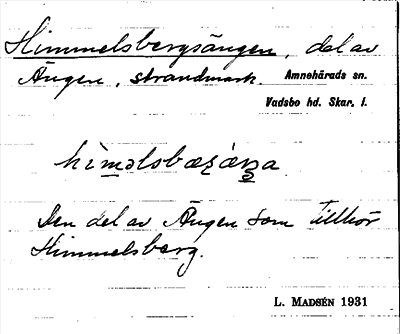 Himmelsbergsängen, del av
Ängen, strandmark. Amnehärads sn.
Vadsbo hd. Skar. l.
Den del av Ängen som tillhör
Himmelsberg.
L. MADSÉN 1931